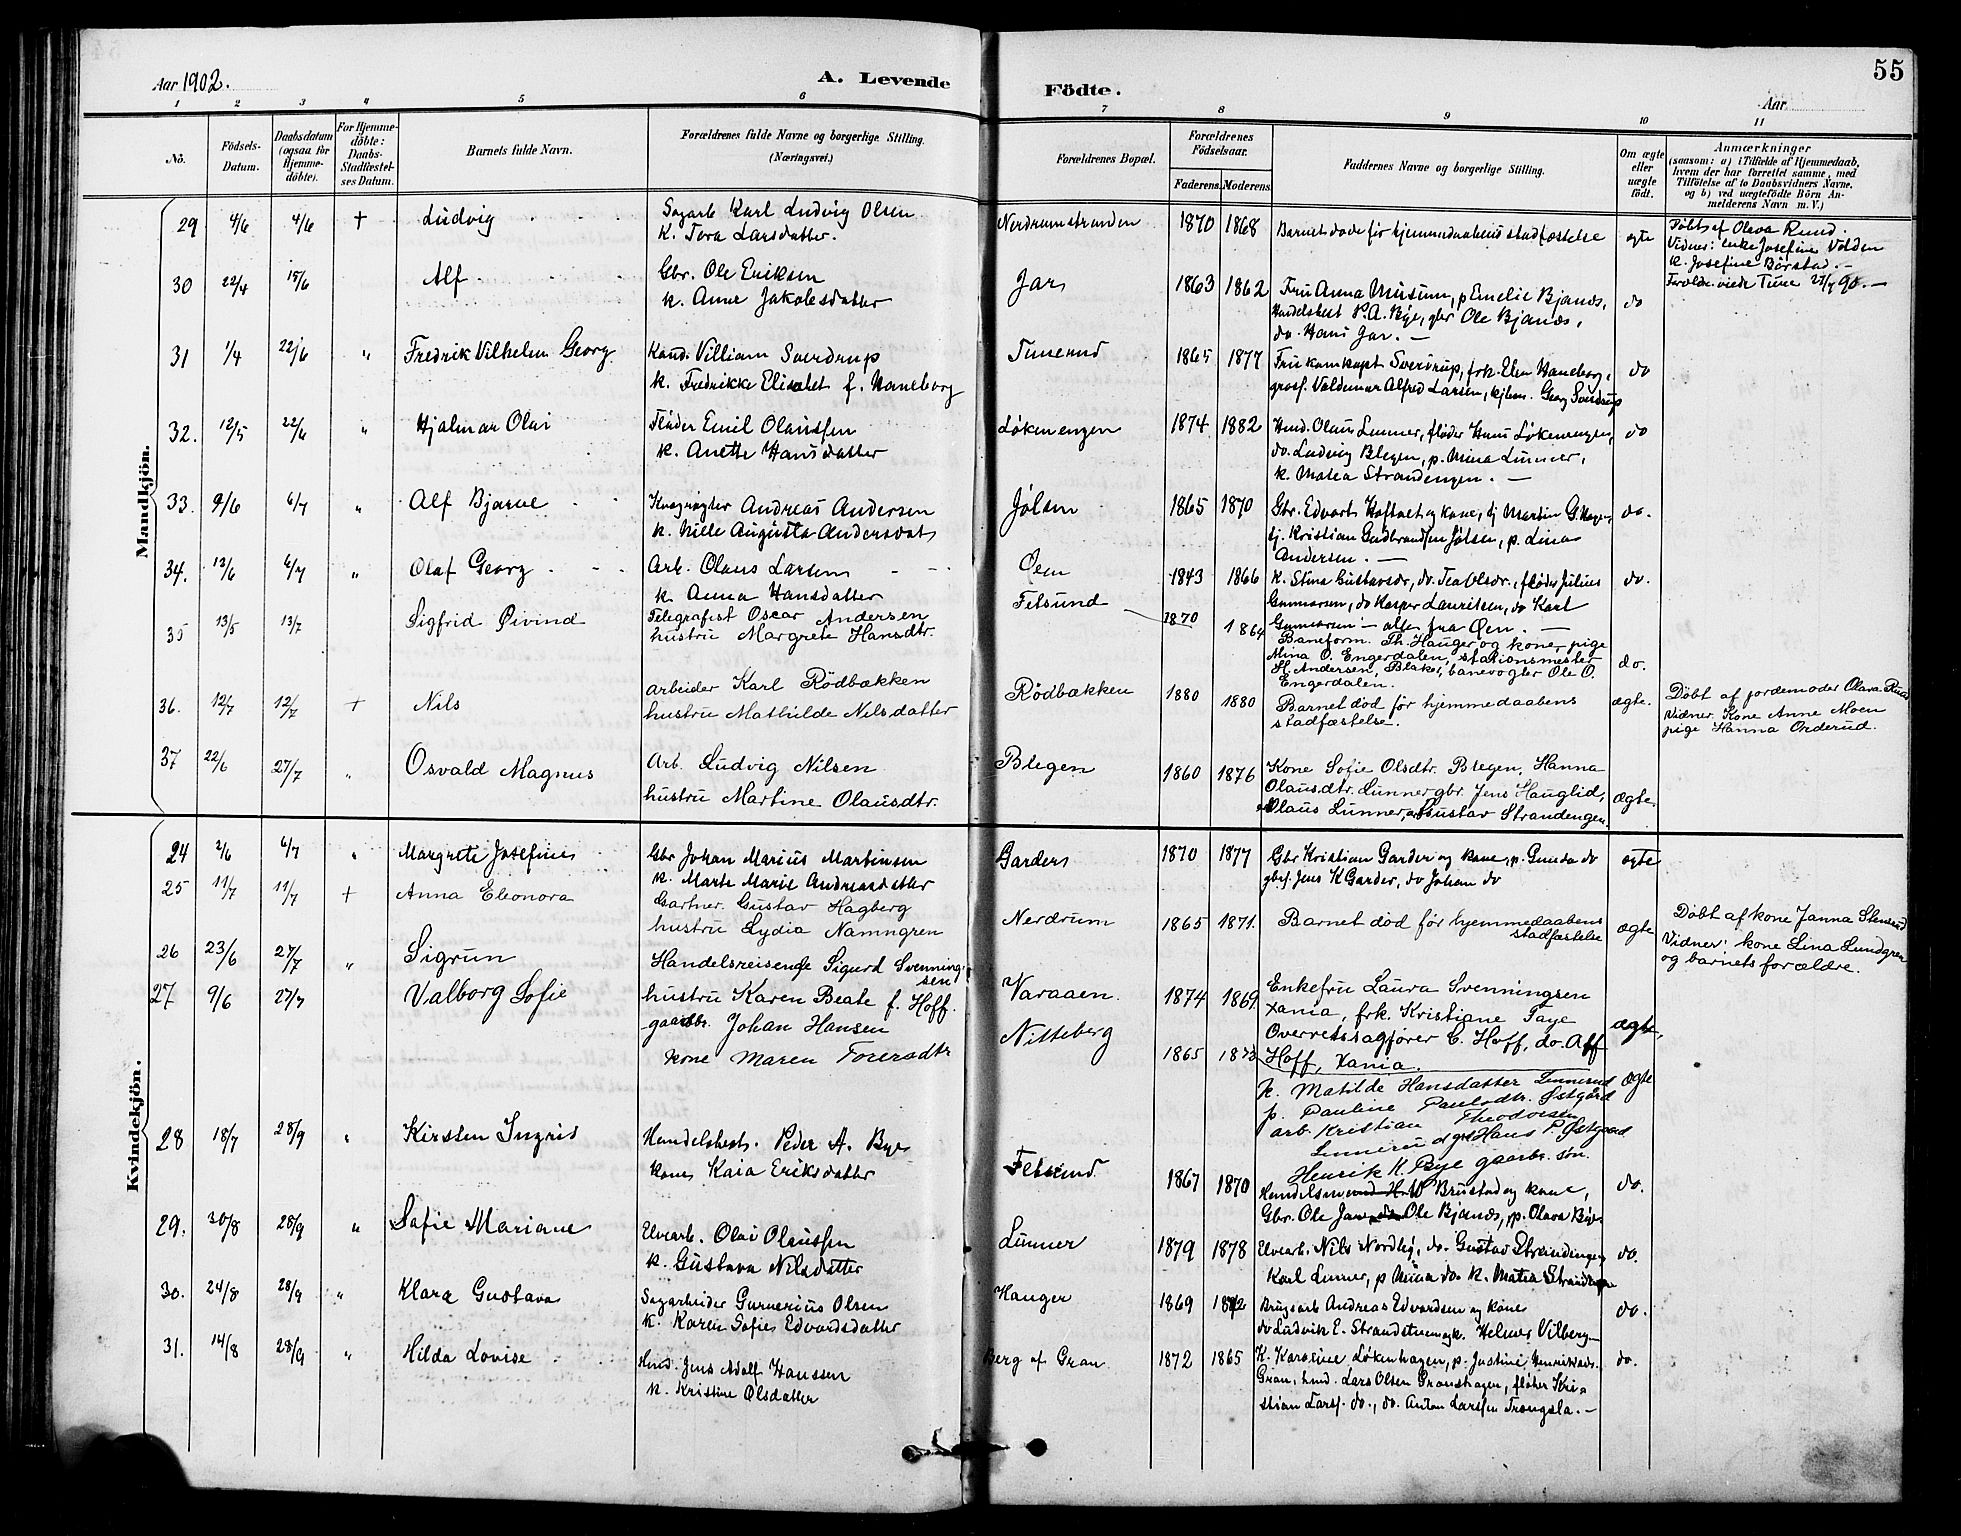 55
Aar 1902.
A. Levende
Födte.
Aar
1 2 3 4 5 6 7 8 9 10 11
No.
Födsels-Datum.
Daabsdatum (ogsaa for Hjemmedöbte).
For Hjemmedöbte: Daabs-Stadfæstelses Datum.
Barnets fulde Navn.
Forældrenes fulde Navne og borgerlige Stilling. (Næringsvei.)
Forældrenes Bopæl.
Forældrenes Födselsaar.
Faderens. Moderens.
Faddernes Navne og borgerlige Stilling.
Om ægte eller uægte födt.
Anmærkninger
(saasom: a) i Tilfælde af Hjemmedaab, hvem der har forrettet samme, med Tilföielse af to Daabsvidners Navne, og b) ved uægtefödte Börn Anmelderens Navn m. V.)
Mandkjön.
29 4/6 4/6 + Ludvig
Sagarb Karl Ludvig Olsen
K. Tora Larsdatter.
Nerdrumstranden 1870 1868
Barnet døde før hjemmedaabens stadfæstelse
ægte
Døbt af Olava Ruud.
Vidner: enke Josefine Volden
K. Josefine Børstad. -
30 22/4 15/6 Alf
Gbr. Ole Eriksen
K. Anne Jakobsdatter
Jar 1863 1862
Fru Anna Mürum, p Emelie Bjanes,
Handelsbest P. A. Bye, gbr Ole Bjanes,
do. Hans Jar. -
do
31 1/4 22/6 " Fredrik Vilhelm Georg
Kand. Villiam Sverdrup
K. Fredrikke Elisabet f. Haneborg
Tunerud 1865 1877
Fru kamkapt Sverdrup, frk. Elen Haneborg,
gros. Valdemar Alfred Larsen, Georg Sverdrup
do
32. 12/5 22/6 " Hjalmar Olai
Fløder Emil Olaussen
K. Anette Hansdatter
Løkenengen 1874 1882
Hmd. Olaus Lunner, fløder Hans Løkenengen,
do. Ludvig Blegen, p. Mina Lunner,
K. Matea Strandengen. -
do
33. 9/6 6/7 " Alf Bjarne
Kvægrøgter Andreas Andersen
K. Nille Augusta Andersdat
Jølsen 1865 1870
Gbr. Edvart Hofset og kone, tj Martin G. Hagen,
tj. Kristian Gudbrandsen Jølsen, p. Lina
Andersen. -
do.
34. 13/6 6/7 " Olaf Georg
Arb. Olaus Larsen
K. Anna Hansdatter
Øen 1843 1866
K. Stina Gustavsdr, do. Tea Olsdr., fløder Julius
Gunnarsen, do Kasper Lauritsen, do Karl
Gunnarsen - alle fra Øen. -
do.
35 13/5 13/7 Sigfrid Øivind
Telegrafist Oscar Andersen
hustru Margrete Hansdtr.
Fetsund 1870 1864
Baneform. Th. Hauger og kone, pige
Mina O. Engerdalen, stationsmester
H. Andersen, Blaker, banevogter Ole O.
Engerdalen.
do.
36. 12/7 12/7 + Nils
arbeider Karl Rödbækken
hustru Mathilde Nilsdatter
Rödbækken 1880 1880
Barnet död før hjemmedaabens
stadfæstelse.
ægte.
Døbt af jordemoder Olava Ruud
Vidner. Kone Anne Moen
pige Hanna Onderud.
37 22/6 27/7 " Osvald Magnus
Arb. Ludvig Nilsen
hustru Martine Olausdtr.
Blegen 1860 1876
Kone Sofie Olsdtr. Blegen, Hanna
Olausdtr. Lunner, gbr. Jens Hauglid,
Olaus Lunner, Gustav Strandengen.
ægte.
Kvindekjön.
24 2/6 6/7 " Margrete Josefine
Gbr Johan Marius Martinsen
K. Marte Marie Andreasdatter
Garder 1870 1877
Gbr Kristian Garder og kone, p. Gunda do
gbrs. Jens K Garder, do Johan do
ægte
25 11/7 11/7 + Anna Eleonora
Gartner. Gustav Hagberg
hustru Lydia Namngren
Nerdrum 1865 1871.
Barnet död før hjemmedaabens
stadfæstelse
ægte
Döbt af kone Janna Stensrud
Vidner: kone Lina Lundgren
og barnets forældre.
26 23/6 27/7 " Sigrun
Handelsreisende Sigurd Svenning-
sen
hustru Karen Beate f. Hoff.
Varaaen. 1874 1869.
Enkefru Laura Svenningsen
Xania, frk. Kristiane Faye
Overretssagfører C. Hoff, do. Alf
Hoff, Xania.
ægte,
27 9/6 27/7 Valborg Sofie
gaardbr. Johan Hansen
kone Maren Toversdtr
Nitteberg 1865 1873
K. Matilde Hansdatter Lennerud
p. Pauline Paulsdtr. Østgård
arb. Kristian Theodorsen
Lennerud og Hans P. Østgaard
Henrik K. Bye gaarbr. søn.
ægte
28 18/7 28/9 " Kirsten Ingrid
Handelsbest. Peder A. Bye
kone Kaia Eriksdatter
Fetsund 1867 1870
Handelsmand H. W Brustad og kone,
Gbr. Ole Jar, Ole Bjanes, p. Olava Bye
do.
29. 30/8 28/9 " Sofie Mariane
Elvearb. Olai Olaussen
K. Gustava Nilsdatter
Lunner 1879 1878
Elvearb. Nils Nordby, do. Gustav Strandengen,
Karl Lunner, p Mina do. K. Matea Strandengen
do.
30. 24/8 28/9 " Klara Gustava
Sagarbeider Gunerius Olsen
K. Karen Sofie Edvardsdatter
Hauger 1869 1872
Brugsarb Andreas Edvardsen og kone
do Ludvik E. Strandstuen, K. Helmer Vilberg
do.
31. 14/8 28/9 " Hilda Lovise
Hmd. Jens Adolf Hanssen
K. Kristine Olsdatter
Berg af Gran 1872 1865
K. Karoline Løkenhagen, p. Justine Henriksdr.
Gran, hmd. Lars Olsen Granshagen, fløter Kri-
stian Larss. do., do. Anton Larssen Trongsla. -
do.